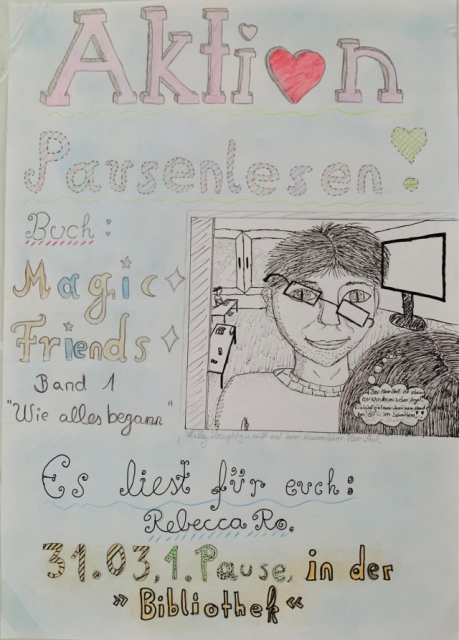 Aktion
Pausenlesen!
Buch:
Magic
Friends
Band 1
"Wie alles begann"
Es liest für euch:
Rebecca Ro.
31.03, 1. Pause, in der
» Bibliothek «